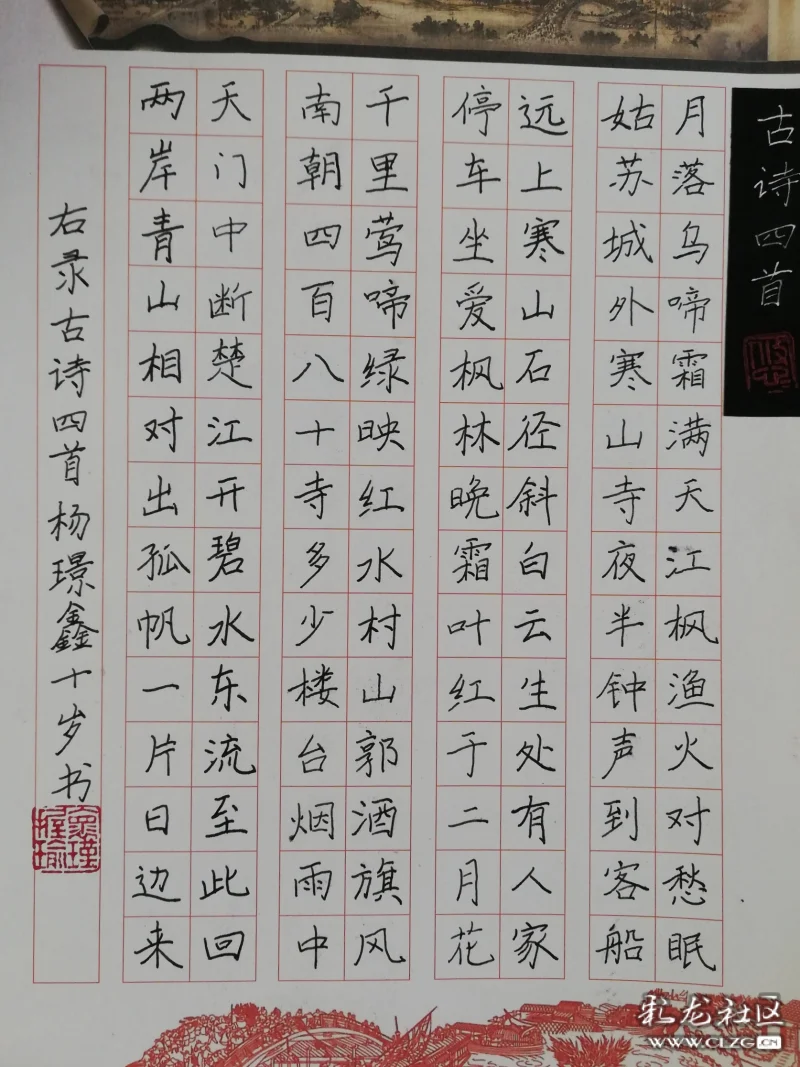 古诗四首
月落乌啼霜满天江枫渔火对愁眠
姑苏城外寒山寺夜半钟声到客船
远上寒山石径斜白云生处有人家
停车坐爱枫林晚霜叶红于二月花
千里莺啼绿映红水村山郭酒旗风
南朝四百八十寺多少楼台烟雨中
天门中断楚江开碧水东流至此回
两岸青山相对出孤帆一片日边来
右录古诗四首杨璟鑫十岁书
怀瑾握瑜
麻龙社区
WWW.CLZG.CN